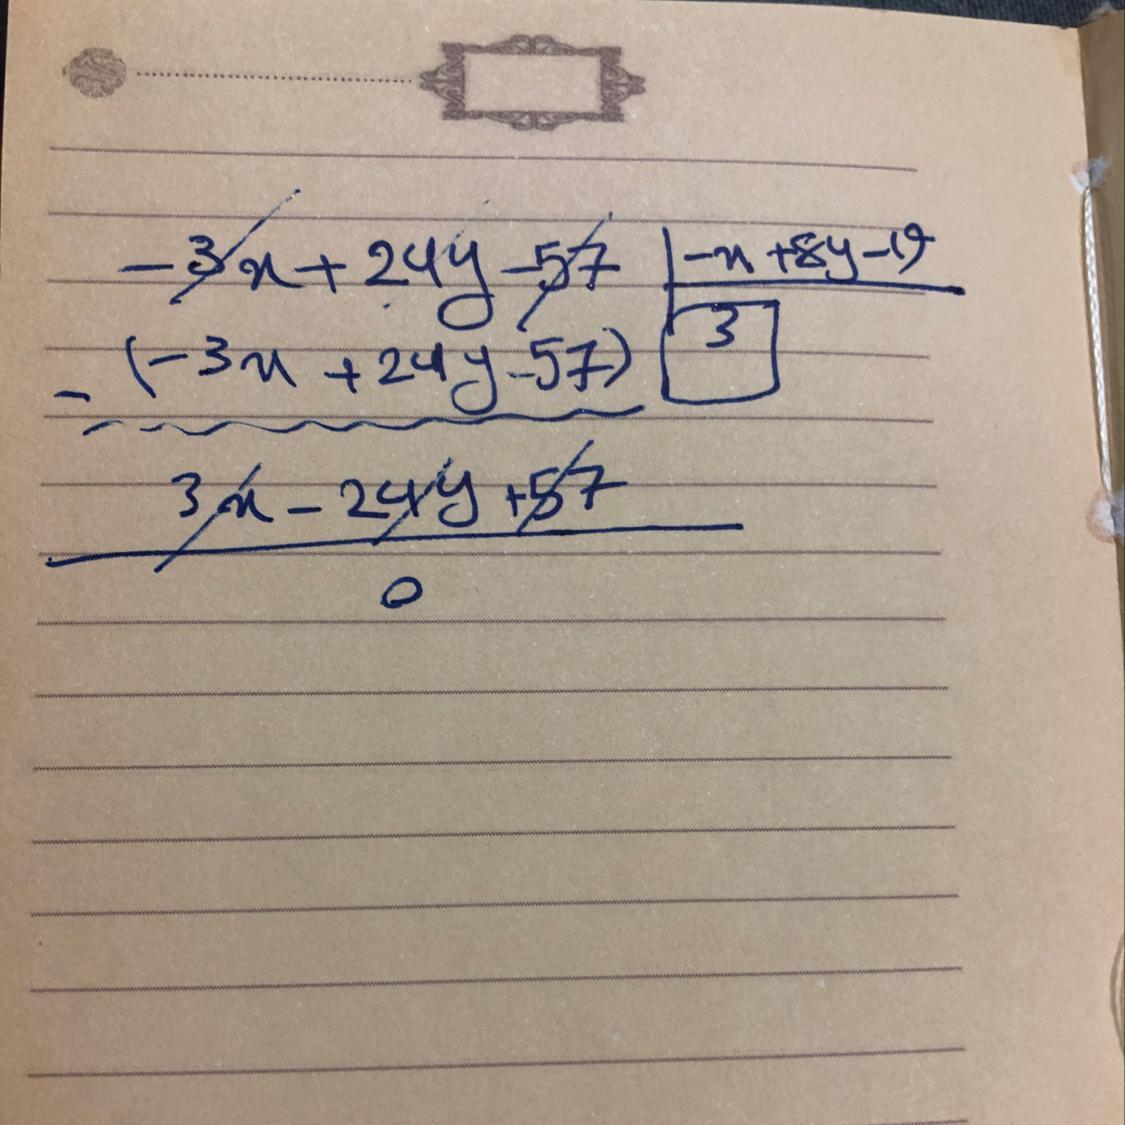 -3x + 24y - 57 | -x + 8y - 19
- (-3x + 24y - 57) 3
3x - 24y + 57
0